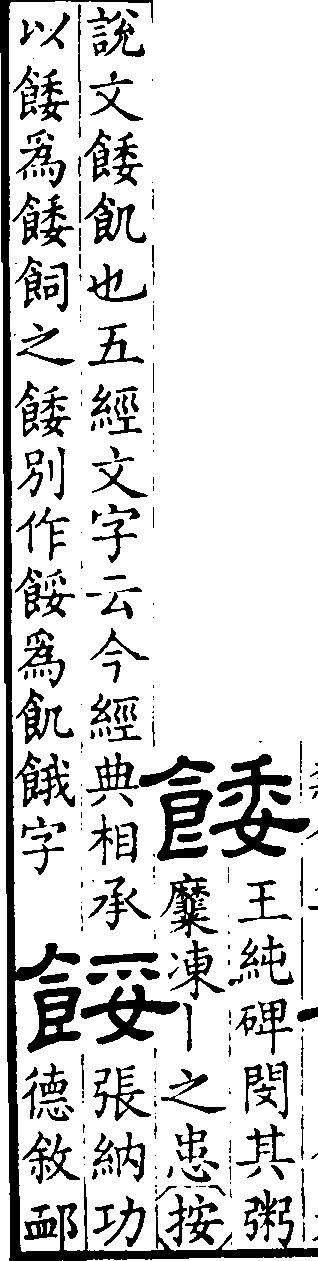 餧
王純碑閔其粥
糜凍丨之患按
說文餧飢也五經文字云今經典相承
以餧爲餧飼之餧別作餒爲飢餓字
餒
張納功
德敘卹